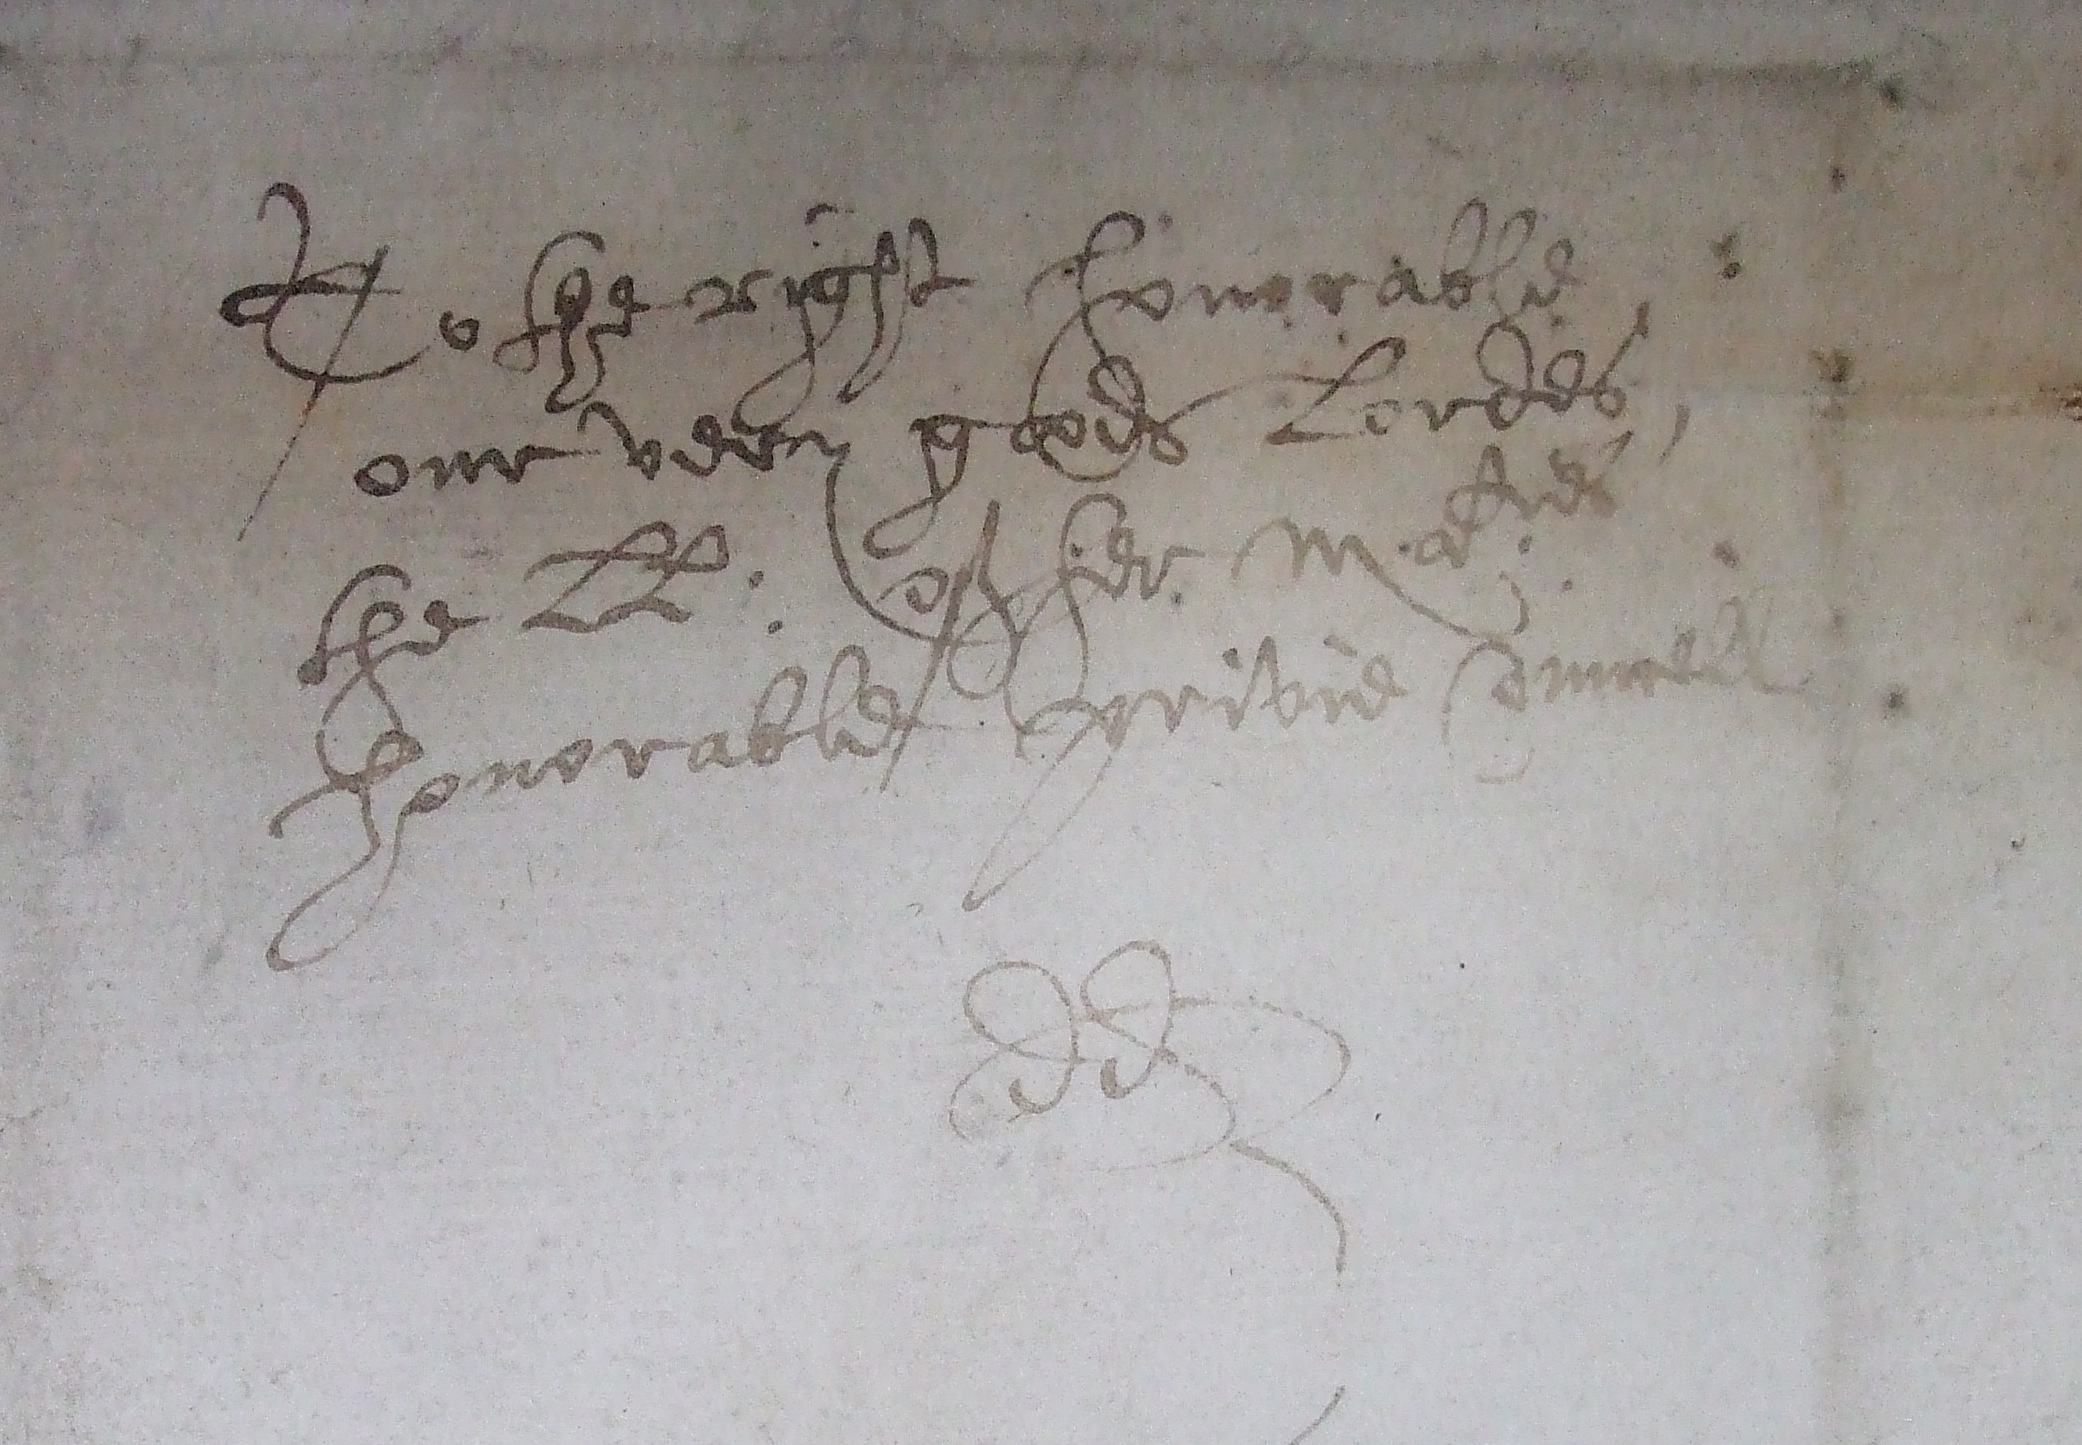 To the right honorable,
our verry goode Lordes,
the LL: of her Ma:ties
honorable privie Counsell
dd